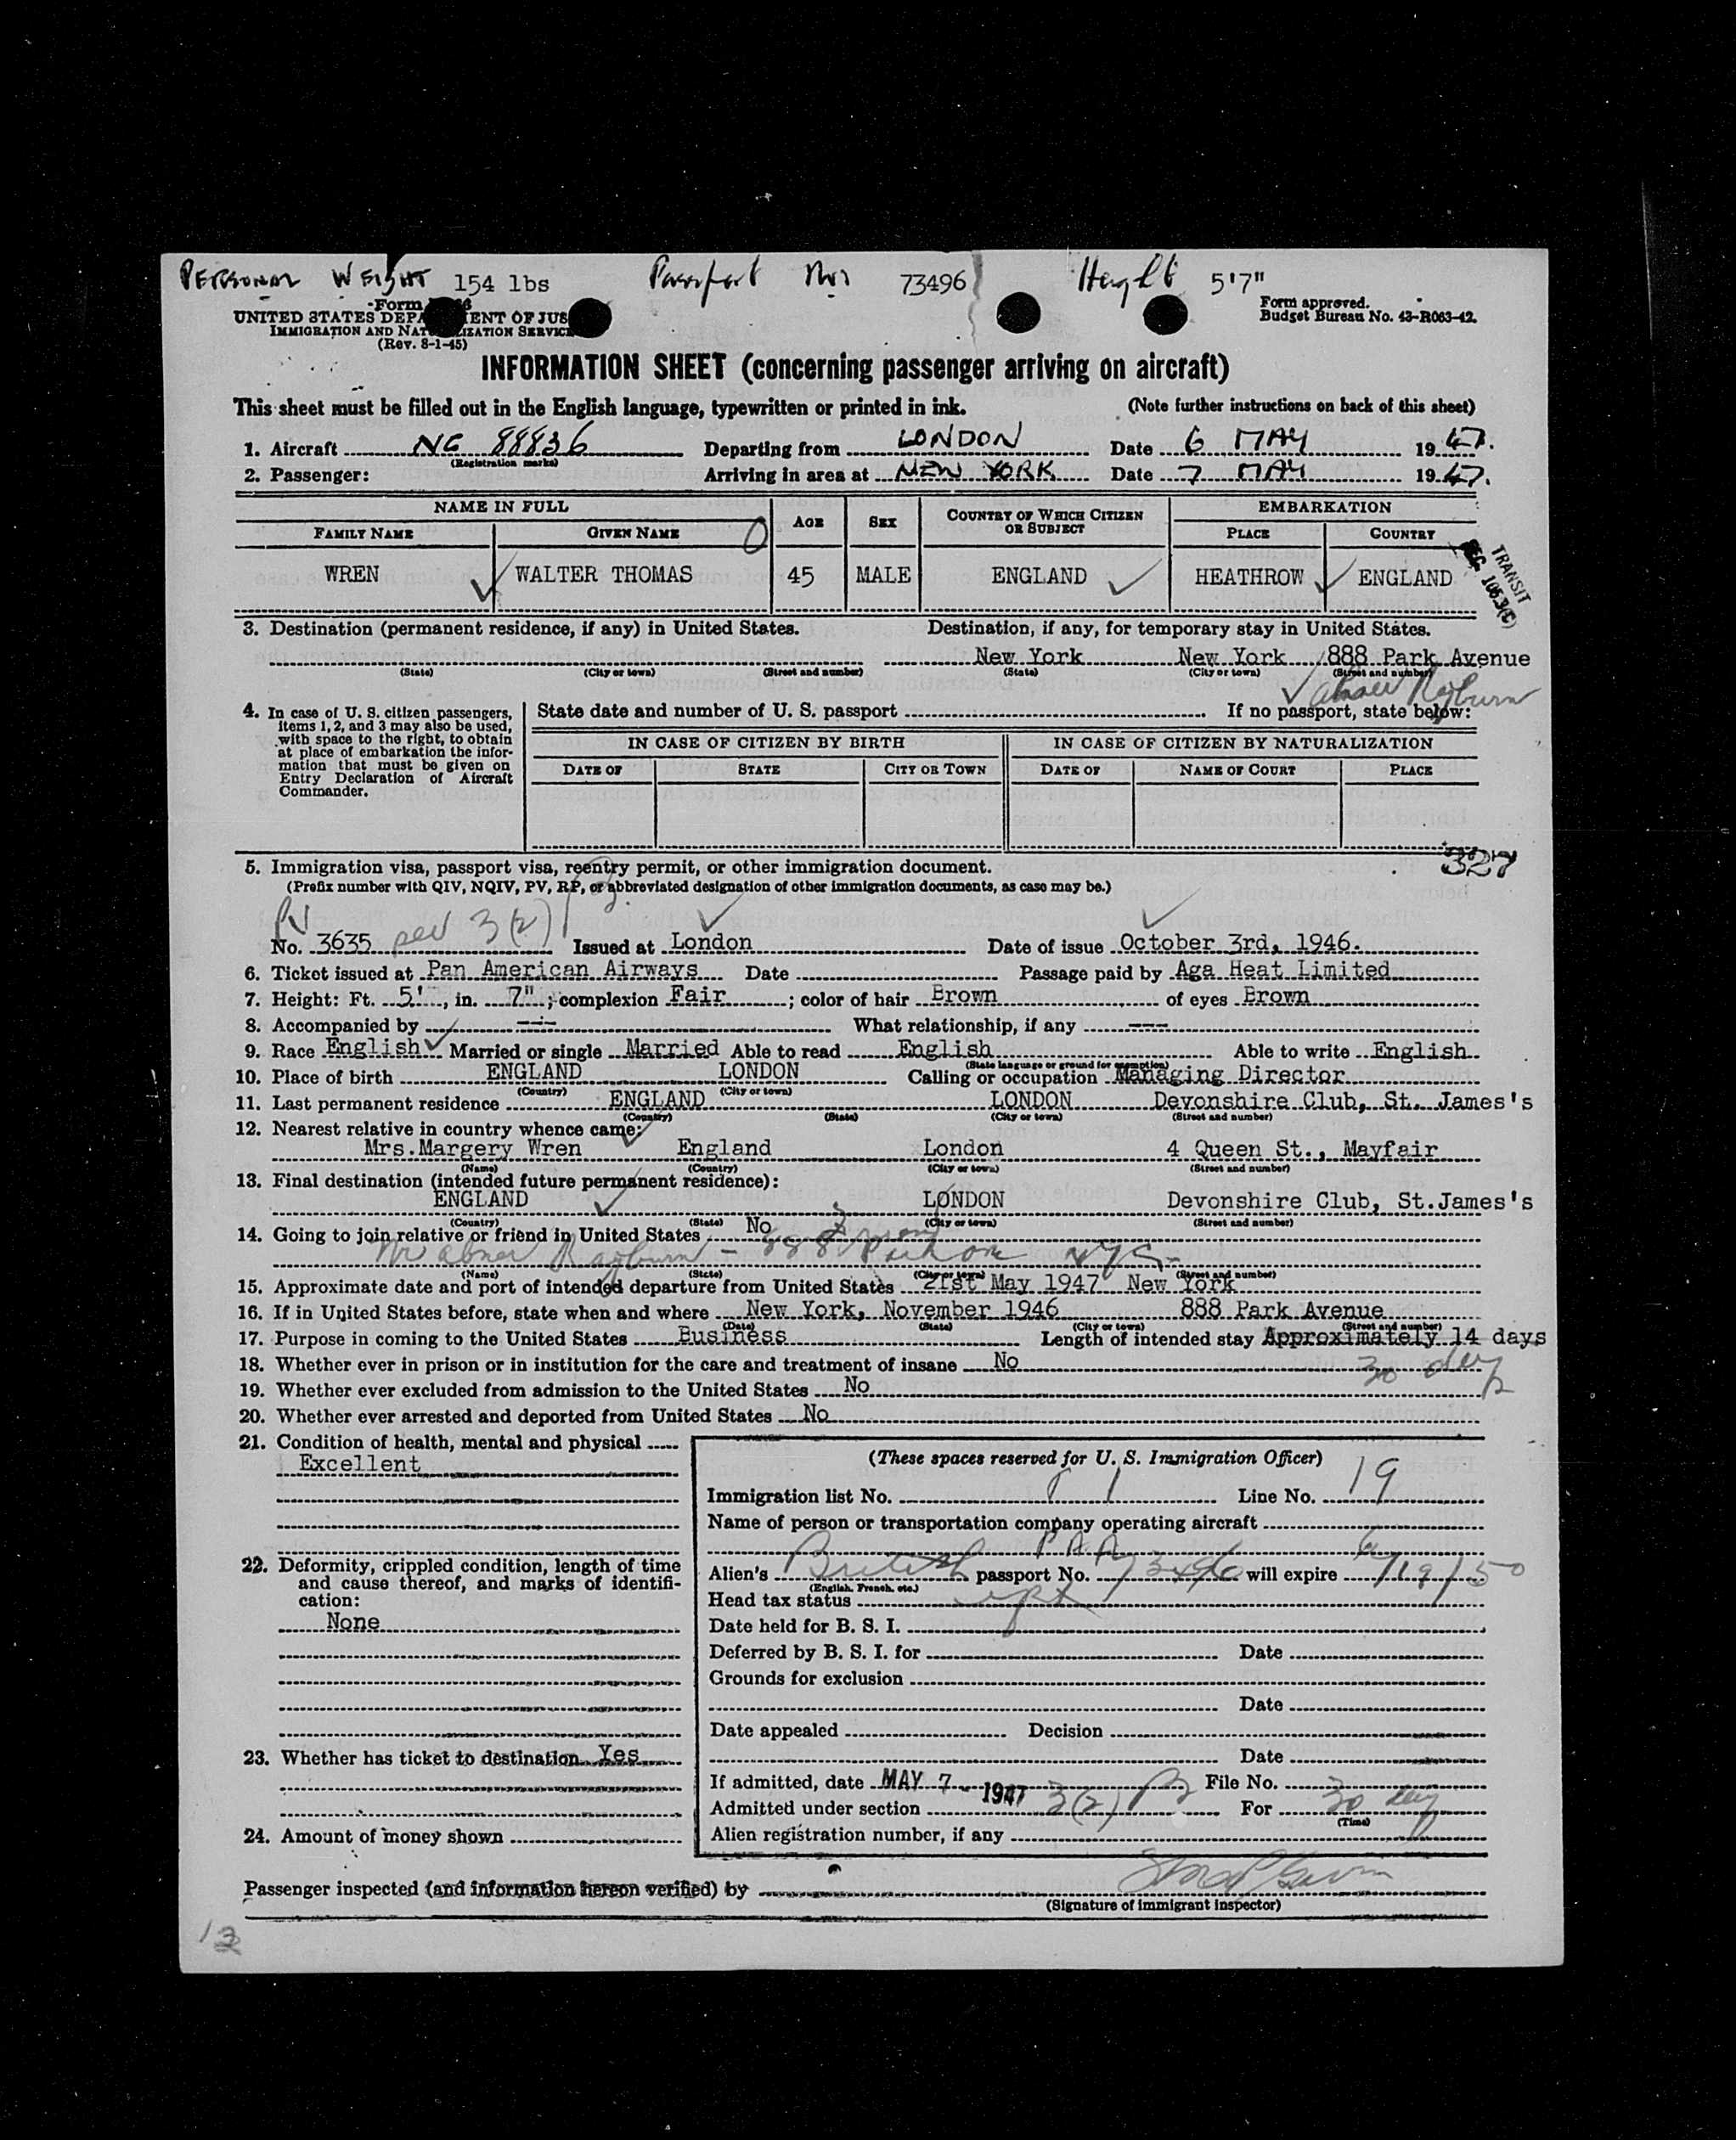 PERSONAL WEIGHT 154 lbs Passport No: 73496 Height 5'7"
Form
UNITED STATES DEPA ENT OF JUS
IMMIGRATION AND NAT IZATION SERVICE
(Rev. 8-1-45)
Form approved.
Budget Bureau No. 43-R063-42.
INFORMATION SHEET (concerning passenger arriving on aircraft)
This sheet must be filled out in the English language, typewritten or printed in ink. (Note further instructions on back of this sheet)
1. Aircraft NC 88836 Departing from LONDON Date 6 MAY 1947.
(Registration marks)
2. Passenger: Arriving in area at NEW YORK Date 7 MAY 1947.
NAME IN FULL AGE SEX COUNTRY OF WHICH CITIZEN OR SUBJECT EMBARKATION
FAMILY NAME GIVEN NAME PLACE COUNTRY
WREN WALTER THOMAS 45 MALE ENGLAND HEATHROW ENGLAND
TRANSIT
SEC. 106.3(C)
3. Destination (permanent residence, if any) in United States. Destination, if any, for temporary stay in United States.
New York New York 888 Park Avenue
(State) (City or town) (Street and number) (State) (City or town) (Street and number)
4. In case of U. S. citizen passengers, items 1, 2, and 3 may also be used, with space to the right, to obtain at place of embarkation the information that must be given on Entry Declaration of Aircraft Commander.
State date and number of U. S. passport If no passport, state below:
IN CASE OF CITIZEN BY BIRTH IN CASE OF CITIZEN BY NATURALIZATION
DATE OF STATE CITY OR TOWN DATE OF NAME OF COURT PLACE
327
5. Immigration visa, passport visa, reentry permit, or other immigration document.
(Prefix number with QIV, NQIV, PV, RP, or abbreviated designation of other immigration documents, as case may be.)
PV
No. 3635 3(2) Issued at London Date of issue October 3rd, 1946.
6. Ticket issued at Pan American Airways Date Passage paid by Aga Heat Limited
7. Height: Ft. 5', in. 7"; complexion Fair; color of hair Brown of eyes Brown
8. Accompanied by --- What relationship, if any ---
9. Race English Married or single Married Able to read English Able to write English
(State language or ground for exemption)
10. Place of birth ENGLAND LONDON Calling or occupation Managing Director
(Country) (City or town)
11. Last permanent residence ENGLAND LONDON Devonshire Club, St. James's
(Country) (State) (City or town) (Street and number)
12. Nearest relative in country whence came:
Mrs.Margery Wren England London 4 Queen St., Mayfair
(Name) (Country) (City or town) (Street and number)
13. Final destination (intended future permanent residence):
ENGLAND LONDON Devonshire Club, St.James's
(Country) (State) (City or town) (Street and number)
14. Going to join relative or friend in United States No
Mr Abner Rayburn - 888 Park Ave NYC
(Name) (State) (City or town) (Street and number)
15. Approximate date and port of intended departure from United States 21st May 1947 New York
16. If in United States before, state when and where New York, November 1946 888 Park Avenue
(Date) (State) (City or town) (Street and number)
17. Purpose in coming to the United States Business Length of intended stay Approximately 14 days
30 days
18. Whether ever in prison or in institution for the care and treatment of insane No
19. Whether ever excluded from admission to the United States No
20. Whether ever arrested and deported from United States No
21. Condition of health, mental and physical
Excellent
22. Deformity, crippled condition, length of time and cause thereof, and marks of identification:
None
23. Whether has ticket to destination Yes
24. Amount of money shown
(These spaces reserved for U. S. Immigration Officer)
Immigration list No. 1 Line No. 19
Name of person or transportation company operating aircraft
PAA
Alien's British passport No. 73496 will expire 6/19/50
(English, French, etc.)
Head tax status
Date held for B. S. I.
Deferred by B. S. I. for Date
Grounds for exclusion
Date
Date appealed Decision
Date
If admitted, date MAY 7 - 1947 File No.
Admitted under section 3(2) For 30 days
(Time)
Alien registration number, if any
Passenger inspected (and information hereon verified) by
(Signature of immigrant inspector)